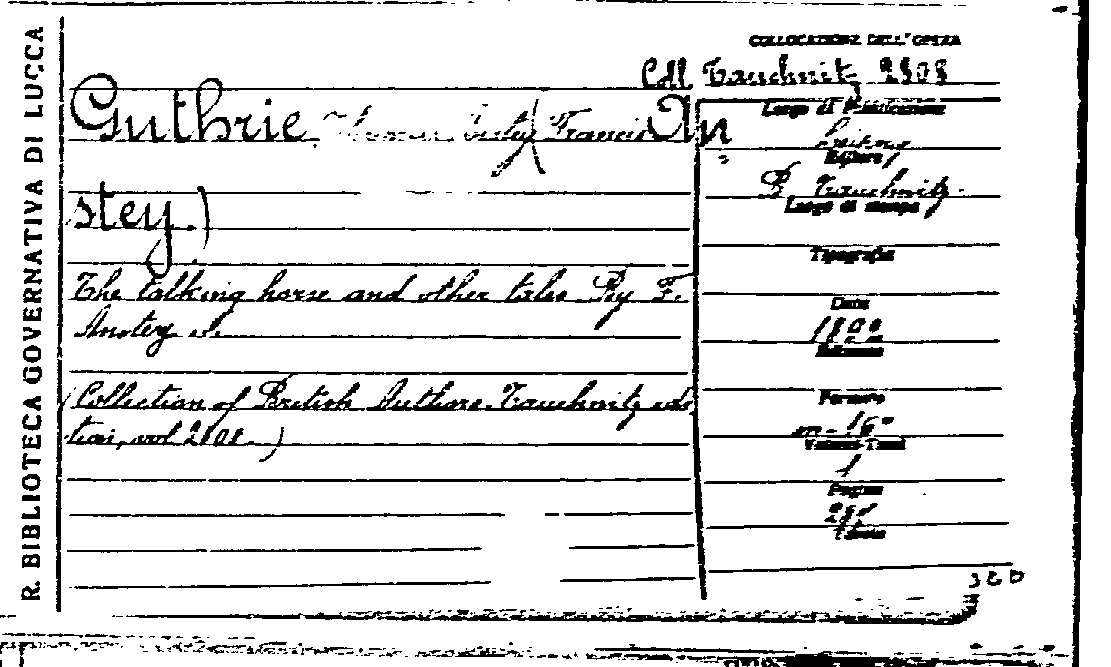 R. BIBLIOTECA GOVERNATIVA DI LUCCA
COLLOCAZIONE DELL'OPERA
Coll Tauchnitz 2808
Guthrie Thomas Francis An
stey.)
The talking horse and other tales By F.
Anstey
(Collection of British Authors. Tauchnitz edi
tion, vol 2808.)
Luogo di Pubblicazione
Editore
B. Tauchnitz
Luogo di stampa
Tipografia
Data
Edizione
Formato
in-16°
Volumi-Tomi
1
Pagine
Tavole
300